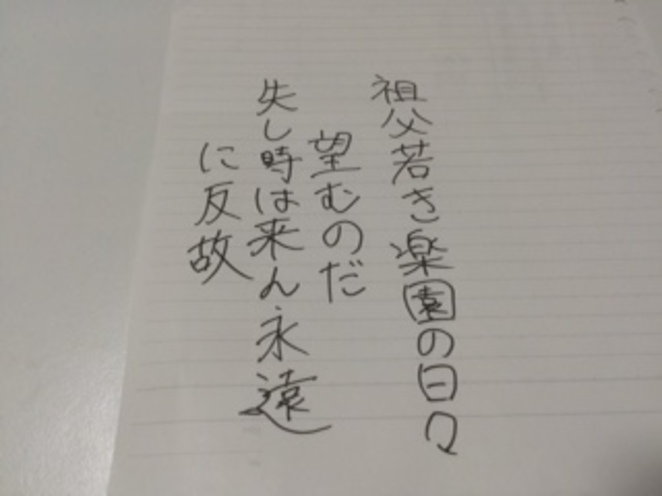 祖父若き楽園の日々
望むのだ
失し時は来ん永遠
に反故